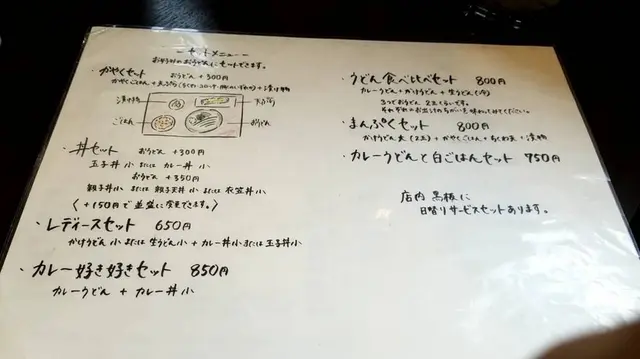 ーセットメニューー
お好みのおうどんにセットできます。
・かやくセット おうどん+300円
かやくごはん+天ぷら(ちくわ・コロッケ・鶏のいずれか)+漬け物
漬け物
天ぷら
ごはん
おうどん
・丼セット おうどん+300円
玉子丼 小 または カレー丼 小
おうどん+350円
親子丼 小 または 親子天丼 小 または 衣笠丼 小
〈+150円で並盛に変更できます。〉
・レディースセット 650円
かけうどん 小 または 生うどん 小 + カレー丼 小 または 玉子丼 小
・カレー好き好きセット 850円
カレーうどん + カレー丼 小
・うどん食べ比べセット 800円
カレーうどん+かけうどん+生うどん(冷)
3つでおうどん 2玉くらいです。
それぞれのお出汁のちがいを味わってみてください。
・まんぷくセット 800円
かけうどん 大(2玉)+かやくごはん+ちくわ天+漬物
・カレーうどんと白ごはんセット 750円
店内 黒板に
日替りサービスセットあります。